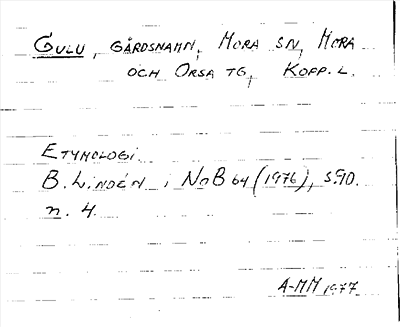 GULU, GÅRDSNAMN, MORA SN, MORA
OCH ORSA TG, KOPP. L.
ETYMOLOGI.
B. Lindén i NoB 64 (1976), s. 90.
n. 4.
A-MM 1977